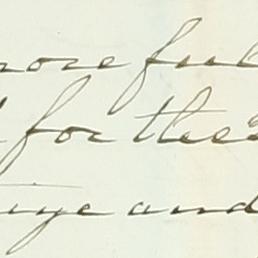 more ful
for thee
and